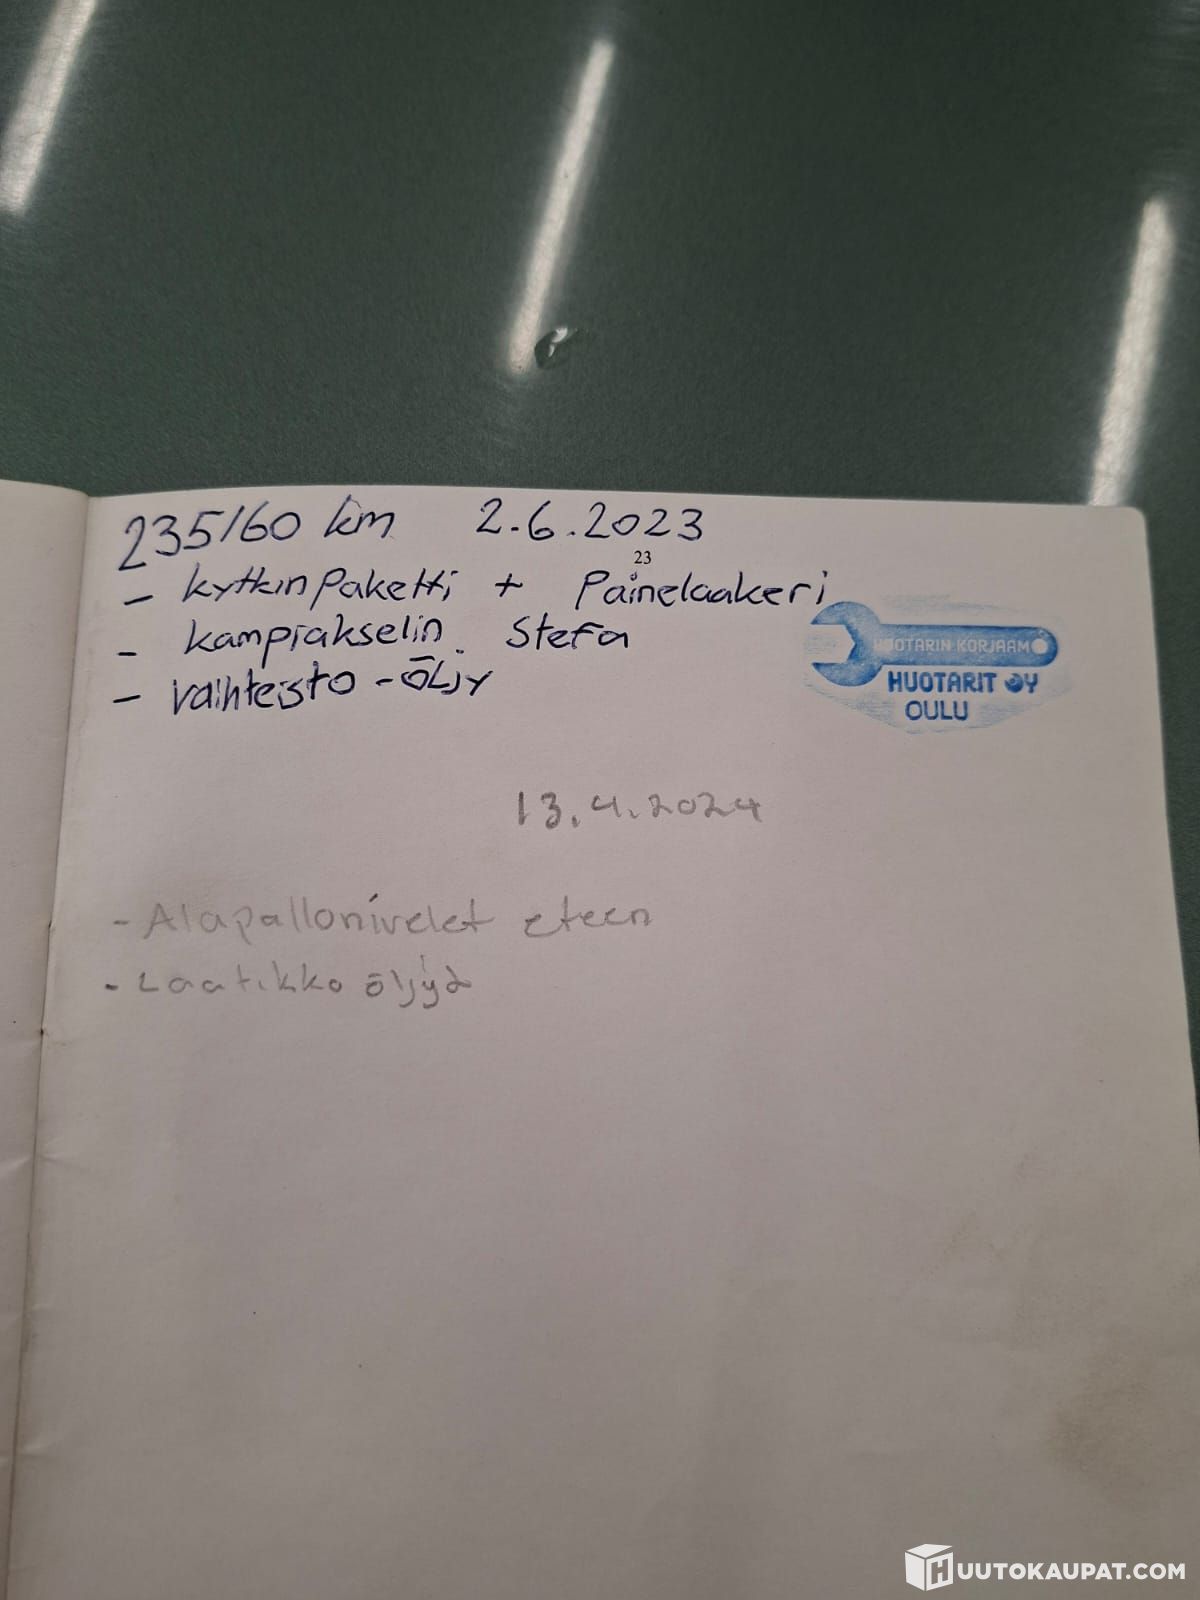 235160 km 2.6.2023
23
- kytkinpaketti + Painelaakeri
- kampiakselin Stefa
- vaihteisto - öljy
HUOTARIN KORJAAMO
HUOTARIT OY
OULU
13.4.2024
- Alapallonivelet eteen
- Laatikko öljyä
HUUTOKAUPAT.COM